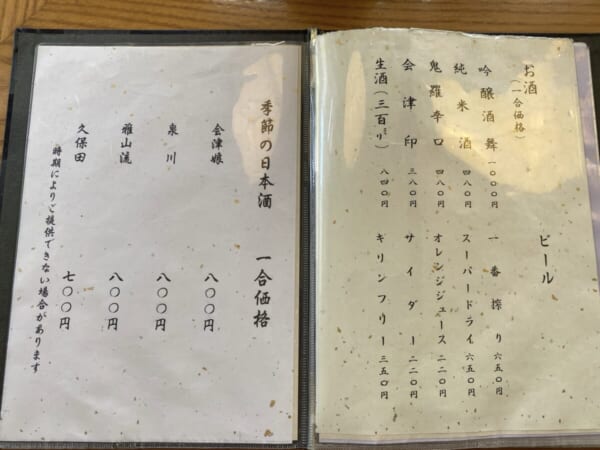 お酒(一合価格)
吟醸酒舞 一〇〇〇円
純米酒 四八〇円
鬼羅辛口 四八〇円
会津印 三八〇円
生酒(三百ミリ) 八四〇円
ビール
一番搾り 六五〇円
スーパードライ 六五〇円
オレンジジュース 二二〇円
サイダー 二二〇円
キリンフリー 三五〇円
季節の日本酒 一合価格
会津娘 八〇〇円
泉川 八〇〇円
雅山流 八〇〇円
久保田 七〇〇円
時期によりご提供できない場合があります